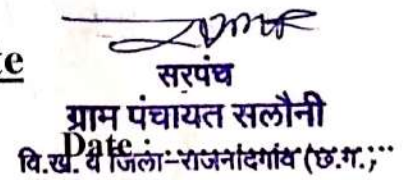 e
सरपंच
ग्राम पंचायत सलौनी
Date :
वि.ख. व जिला-राजनांदगांव (छ.ग.)